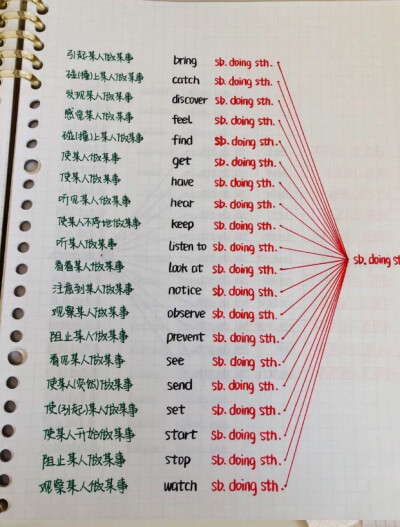 引起某人做某事 bring sb. doing sth.
碰(撞)上某人做某事 catch sb. doing sth.
发现某人做某事 discover sb. doing sth.
感觉某人做某事 feel sb. doing sth.
碰(撞)上某人做某事 find sb. doing sth.
使某人做某事 get sb. doing sth.
使某人做某事 have sb. doing sth.
听见某人做某事 hear sb. doing sth.
使某人不停地做某事 keep sb. doing sth.
听某人做某事 listen to sb. doing sth.
看着某人做某事 look at sb. doing sth.
sb. doing st
注意到某人做某事 notice sb. doing sth.
观察某人做某事 observe sb. doing sth.
阻止某人做某事 prevent sb. doing sth.
看见某人做某事 see sb. doing sth.
使某人(突然)做某事 send sb. doing sth.
使(引起)某人做某事 set sb. doing sth.
使某人开始做某事 start sb. doing sth.
阻止某人做某事 stop sb. doing sth.
观察某人做某事 watch sb. doing sth.